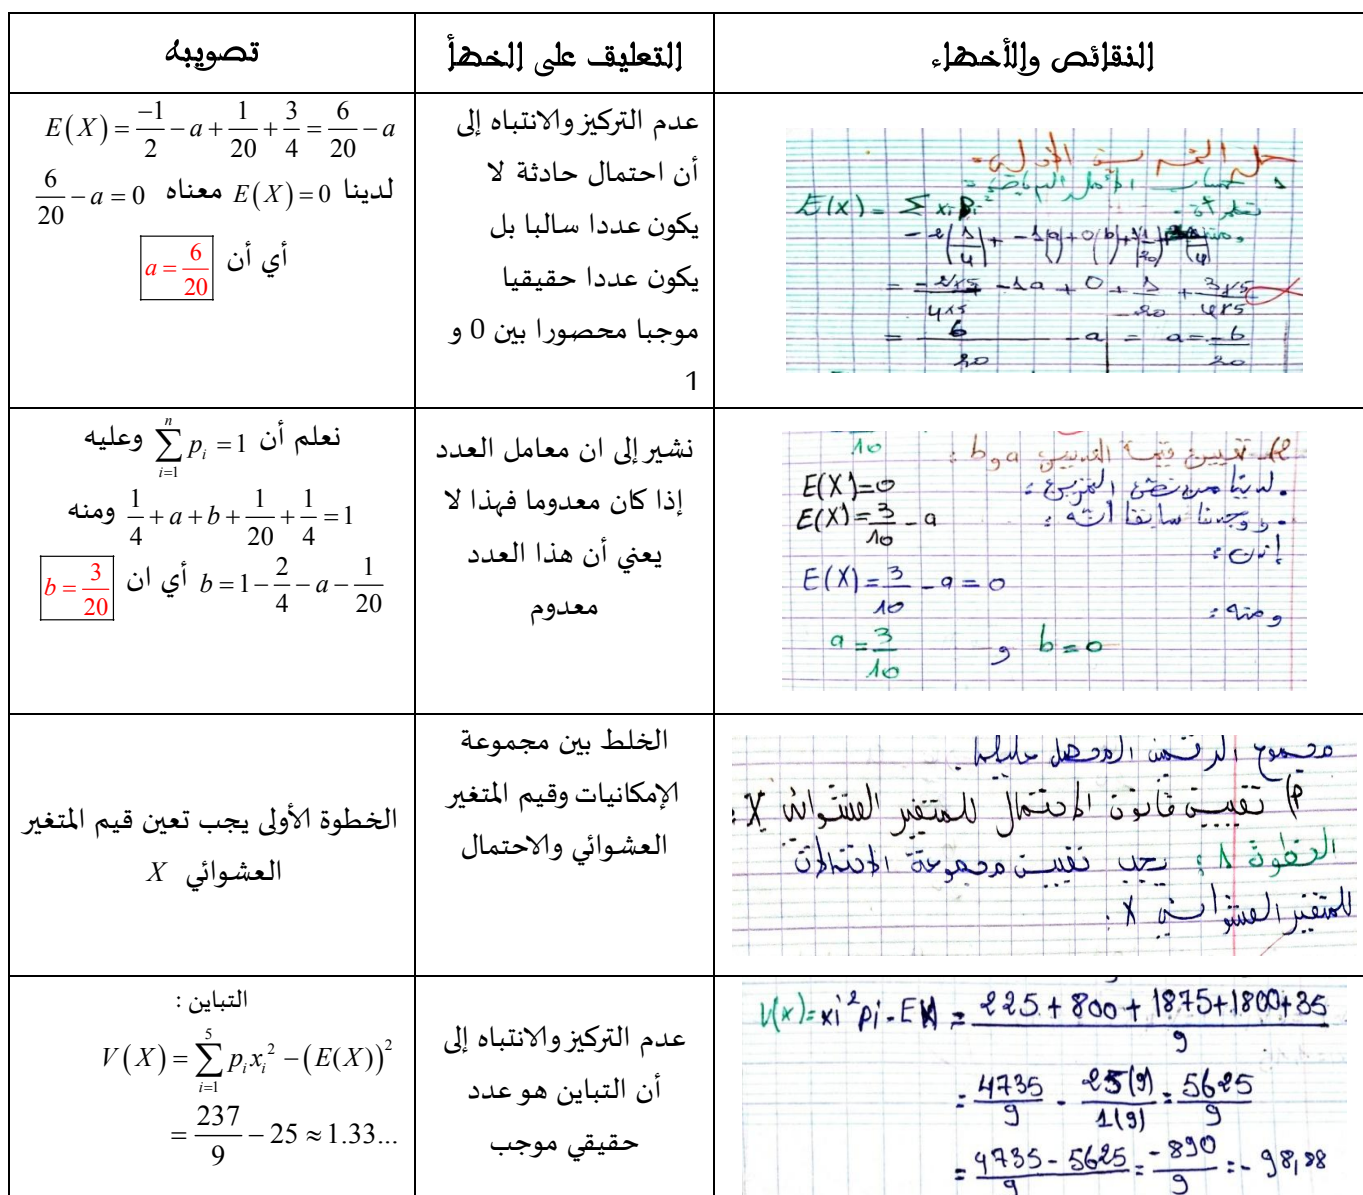 النقائص والأخطاء
التعليق على الخطأ
تصويبه
حل التمرين الأول:
1 حساب الأمل الرياضي:
نعلم أن:
E(x) = Σ xi Pi
ومنه
-2(1/4) + -1(a) + 0(b) + 1(1/20) + (/4)
= -2×5/4×5 - 1a + 0 + 1/20 + 3×5/4×5
= 6/20 - a = a = -6/20
عدم التركيز والانتباه إلى
أن احتمال حادثة لا
يكون عددا سالبا بل
يكون عددا حقيقيا
موجبا محصورا بين 0 و
1
E(X) = -1/2 - a + 1/20 + 3/4 = 6/20 - a
لدينا E(X) = 0 معناه 6/20 - a = 0
أي أن a = 6/20
10
2) تعيين قيمة العددين a و b:
لدينا من نص التمرين: E(X)=0
ووجدنا سابقا أنه: E(X)=3/10 - a
إذن:
E(X)=3/10 - a = 0
ومنه:
a = 3/10 و b = 0
نشير إلى ان معامل العدد
إذا كان معدوما فهذا لا
يعني أن هذا العدد
معدوم
نعلم أن ∑_{i=1}^{n} p_i = 1 وعليه
1/4 + a + b + 1/20 + 1/4 = 1 ومنه
b = 1 - 2/4 - a - 1/20 أي ان b = 3/20
مجموع الرقمين المحصل عليهما.
P) تعيين قانون الاحتمال للمتغير العشوائي X:
الخطوة 1: يجب تعيين مجموعة الاحتمالات
للمتغير العشوائي X.
الخلط بين مجموعة
الإمكانيات وقيم المتغير
العشوائي والاحتمال
الخطوة الأولى يجب تعين قيم المتغير
العشوائي X
V(x)= xi²pi - EX = 225 + 800 + 1875 + 1800 + 35 / 9
= 4735/9 - 25(9)/1(9) = 5625/9
= 4735 - 5625 / 9 = -890/9 = -98,88
عدم التركيز والانتباه إلى
أن التباين هو عدد
حقيقي موجب
التباين :
V(X) = ∑_{i=1}^{5} p_i x_i² - (E(X))²
= 237/9 - 25 ≈ 1.33...